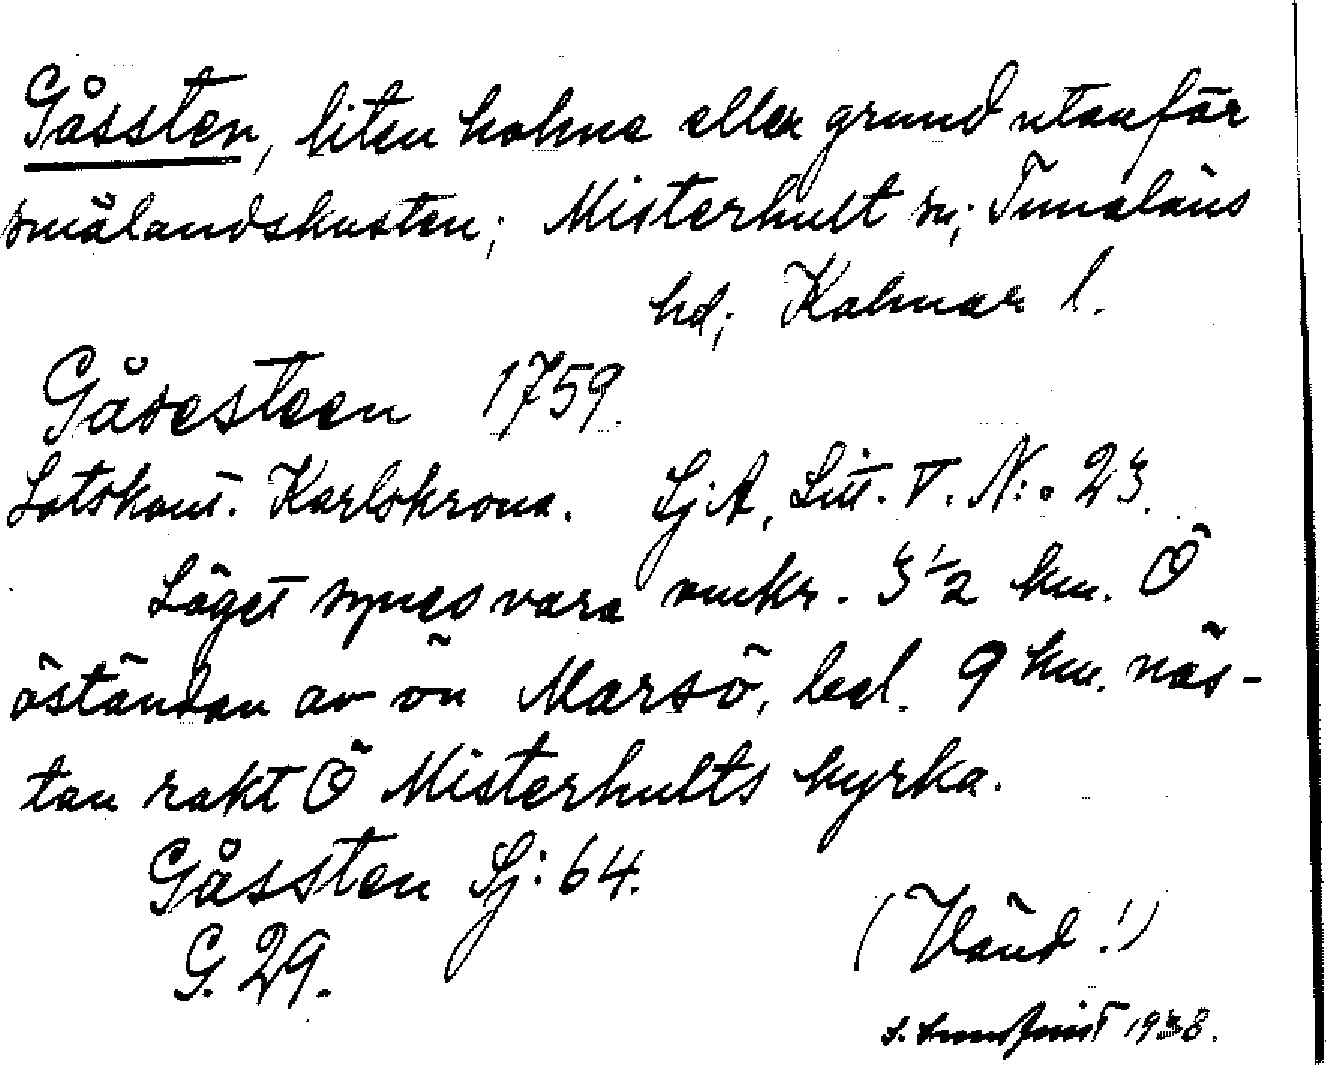 Gåssten, liten holme eller grund utanför
smålandskusten; Misterhult sn; Tunaläns
hd; Kalmar l.
Gåsesteen 1759.
Lotskont. Karlskrona. Sj:A, Litt. V. N:o 23.
Läget synes vara omkr. 3 1/2 km. Ö
östandan av ön Marsö, bel. 9 km. näs-
tan rakt Ö Misterhults kyrka.
Gåssten Sj: 64.
G. 29.
(Vänd!)
S. 1938.